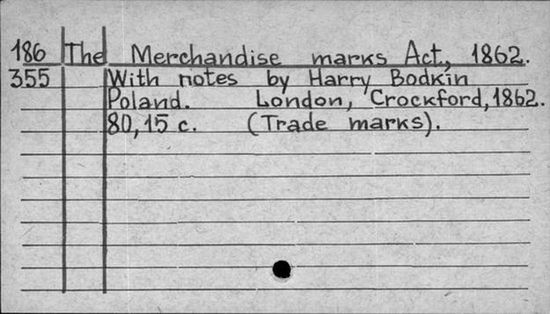 186 The Merchandise marks Act, 1862.
355 With notes by Harry Bodkin
Poland. London, Crockford, 1862.
80, 15 c. (Trade marks).